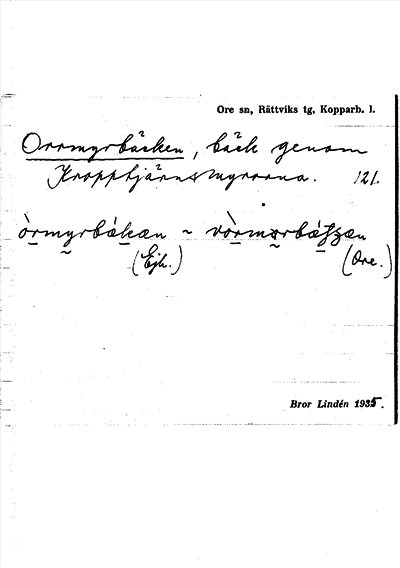 Ore sn, Rättviks tg, Kopparb. l.
Orrmyrbäcken, bäck genom
Kropptjärnsmyrorna. 121.
òrmyrbäkæn ~ vòrmørbäʃʒæn
(Ejh.) (Ore.)
Bror Lindén 1935.